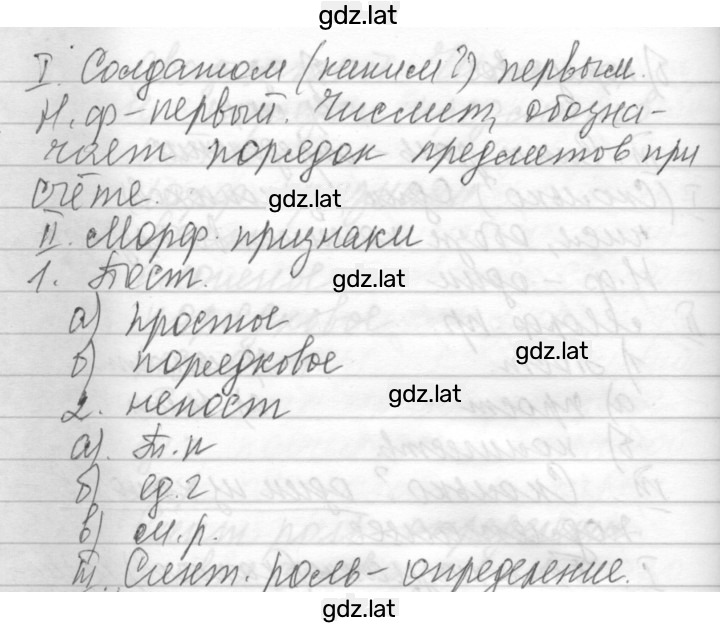 gdz.lat
I. Солдатом (каким?) первым.
Н.ф – первый. Числит, обозна-
чает порядок предметов при
счёте.
gdz.lat
II. Морф. признаки
1. Пост.
gdz.lat
а) простое
б) порядковое
gdz.lat
2. непост
gdz.lat
а). Т.п
б) ед.ч
в) м.р.
III. Синт. роль – определение.
gdz.lat